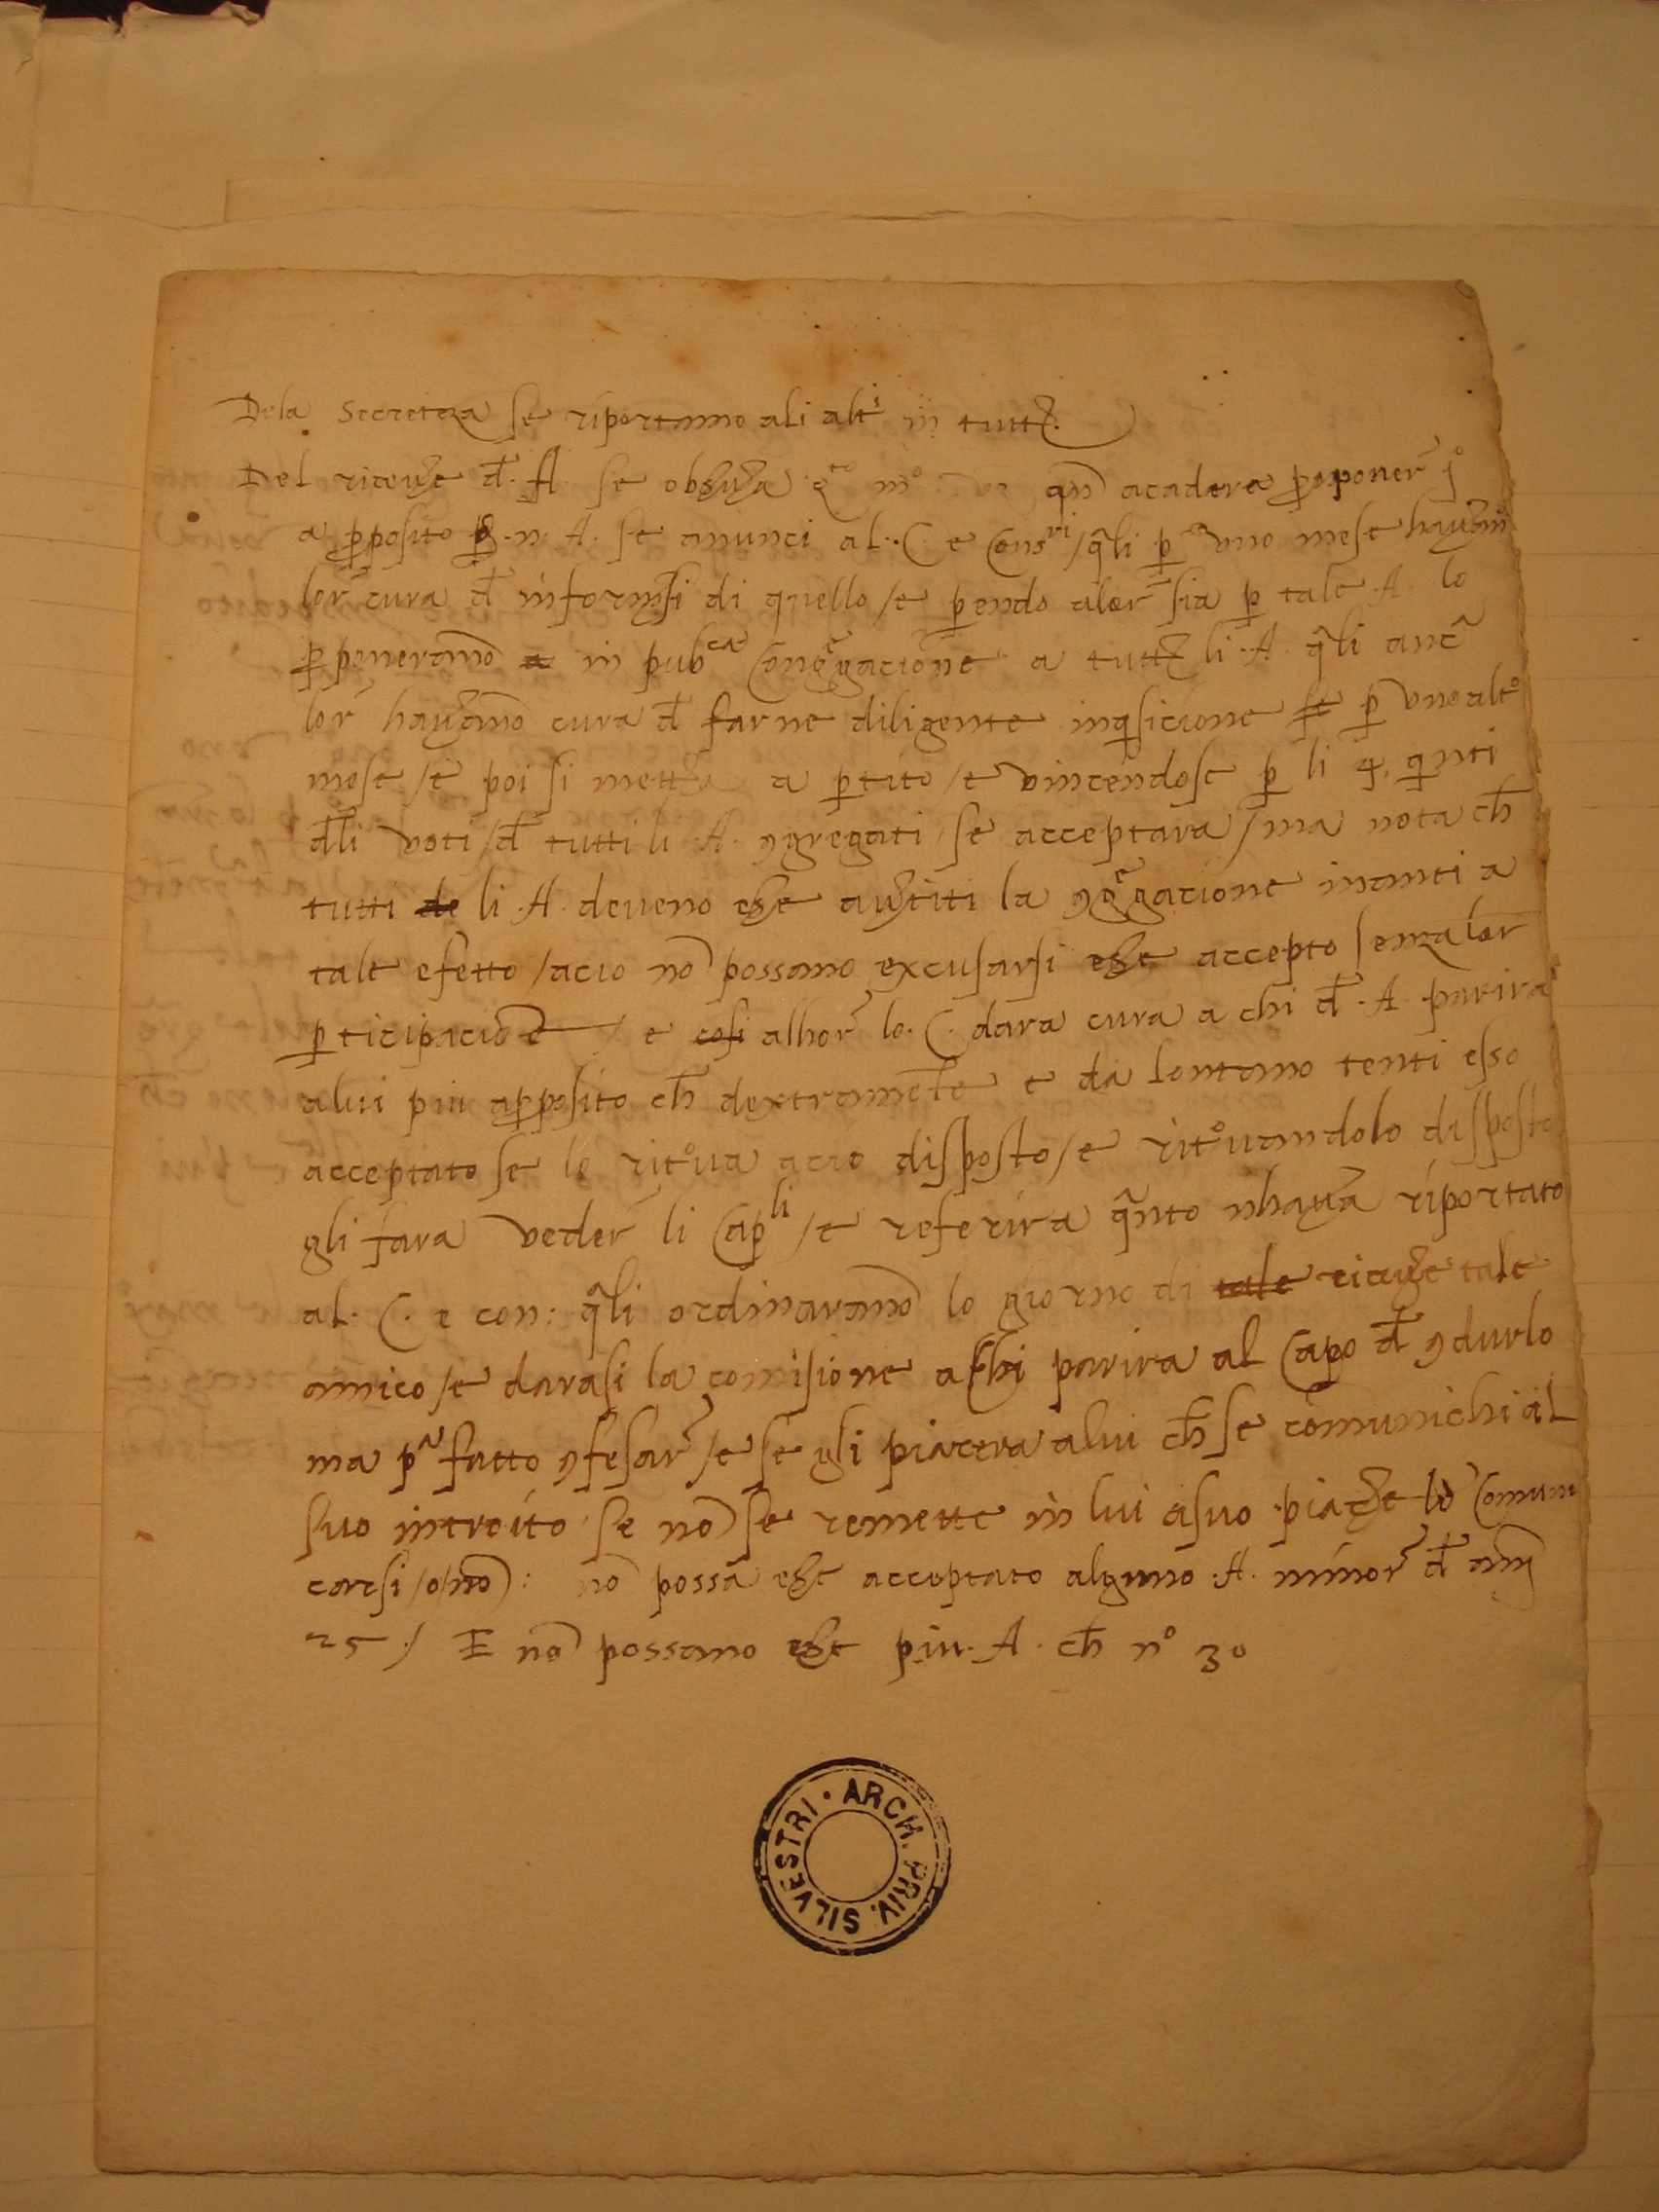 Dela Secreteza se riportamo ali altⁱ in tutt̃.
Del riceu̾e đ. A se obser̃va q̃ᵗᵒ mᵒ qñ acadera ꝓoponer̃ jᵒ
a ꝓposito ꝑ .n. A. se anunci al .C. e Consʳⁱ / q̃li ꝑ uno mese haue̾ano
lor̃ cura đ informar̃si di quello / e ꝑendo alor̃ sia ꝑ tale .A. lo
ꝓponeramõ in pubᶜᵃ Congͤgacione a tutt̃ li .A. q̃li anc̃
lor̃ haue̾amõ cura đ farne diligente inq̃sicione ꝑ uno altᵒ
mese / e poi si mett̃a a ꝑtito / e vincendose ꝑ li 4 q̃nti
đli voti / đ tutti li .A. ꝯgregati se acceptara / ma nota ch̃
tutti de li .A. deueno ess̾e aue̾titi la ꝯgͤgacione inanti a
tale efetto / acio nõ possano excusarsi ess̾e accepto senza lor̃
ꝑticipacione / e cosi allhor̃ lo .C. dara cura a chi đ .A. parira
alui piu aꝓposito ch̃ dextramẽte e da lontano tenti esso
acceptato se lo ritᵒua acio disposto / e ritᵒuandolo disposto
gli fara veder̃ li Capˡⁱ / e referira q̃nto nhaue̾a riportato
al .C. e con: q̃li ordinaramõ lo giorno di tale riceu̾e tale
amico / e darasi la comisione a chi parira al Capo đ ꝯdurlo
ma pᵃ fatto ꝯfesar̃ / e se gli piacera alui ch̃ se comunichi al
suo introito se nõ se remette in lui asuo piace̾e lo Comuni
carsi / o / nõ): nõ possa ess̾e acceptato alguno .A. minor̃ đ anj
25 ./ E nõ possano ess̾e piu .A. ch̃ nᵒ 30
ARCH. PRIV. SILVESTRI